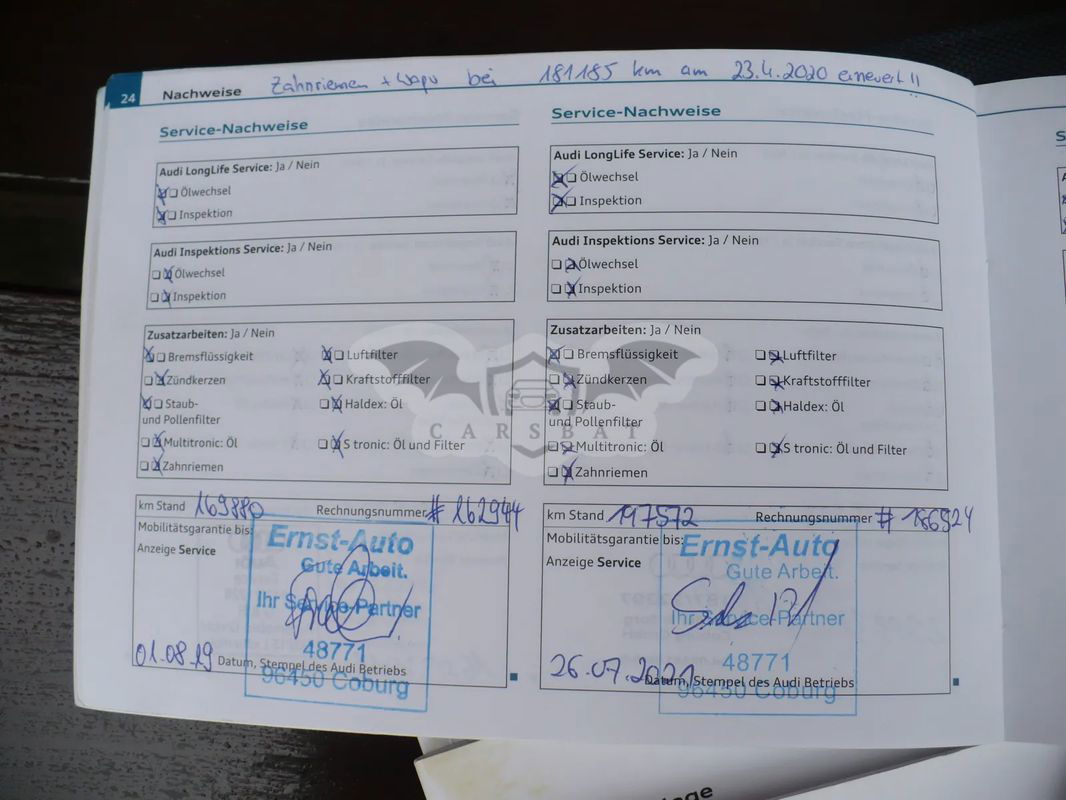 24 Nachweise Zahnriemen + Wapu bei 181185 km am 23.4.2020 erneuert !!
Service-Nachweise
Audi LongLife Service: Ja / Nein
Ölwechsel
Inspektion
Audi Inspektions Service: Ja / Nein
Ölwechsel
Inspektion
Zusatzarbeiten: Ja / Nein
Bremsflüssigkeit Luftfilter
Zündkerzen Kraftstofffilter
Staub- Haldex: Öl
und Pollenfilter
Multitronic: Öl S tronic: Öl und Filter
Zahnriemen
km Stand 169880 Rechnungsnummer # 162944
Mobilitätsgarantie bis:
Anzeige Service
Ernst-Auto
Gute Arbeit.
Ihr Service-Partner
48771
96450 Coburg
01.08.19 Datum, Stempel des Audi Betriebs
Service-Nachweise
Audi LongLife Service: Ja / Nein
Ölwechsel
Inspektion
Audi Inspektions Service: Ja / Nein
Ölwechsel
Inspektion
Zusatzarbeiten: Ja / Nein
Bremsflüssigkeit Luftfilter
Zündkerzen Kraftstofffilter
Staub- Haldex: Öl
und Pollenfilter
Multitronic: Öl S tronic: Öl und Filter
Zahnriemen
km Stand 197572 Rechnungsnummer # 186924
Mobilitätsgarantie bis:
Anzeige Service
Ernst-Auto
Gute Arbeit.
Ihr Service-Partner
48771
96450 Coburg
26.07.2021 Datum, Stempel des Audi Betriebs
CARSBAT